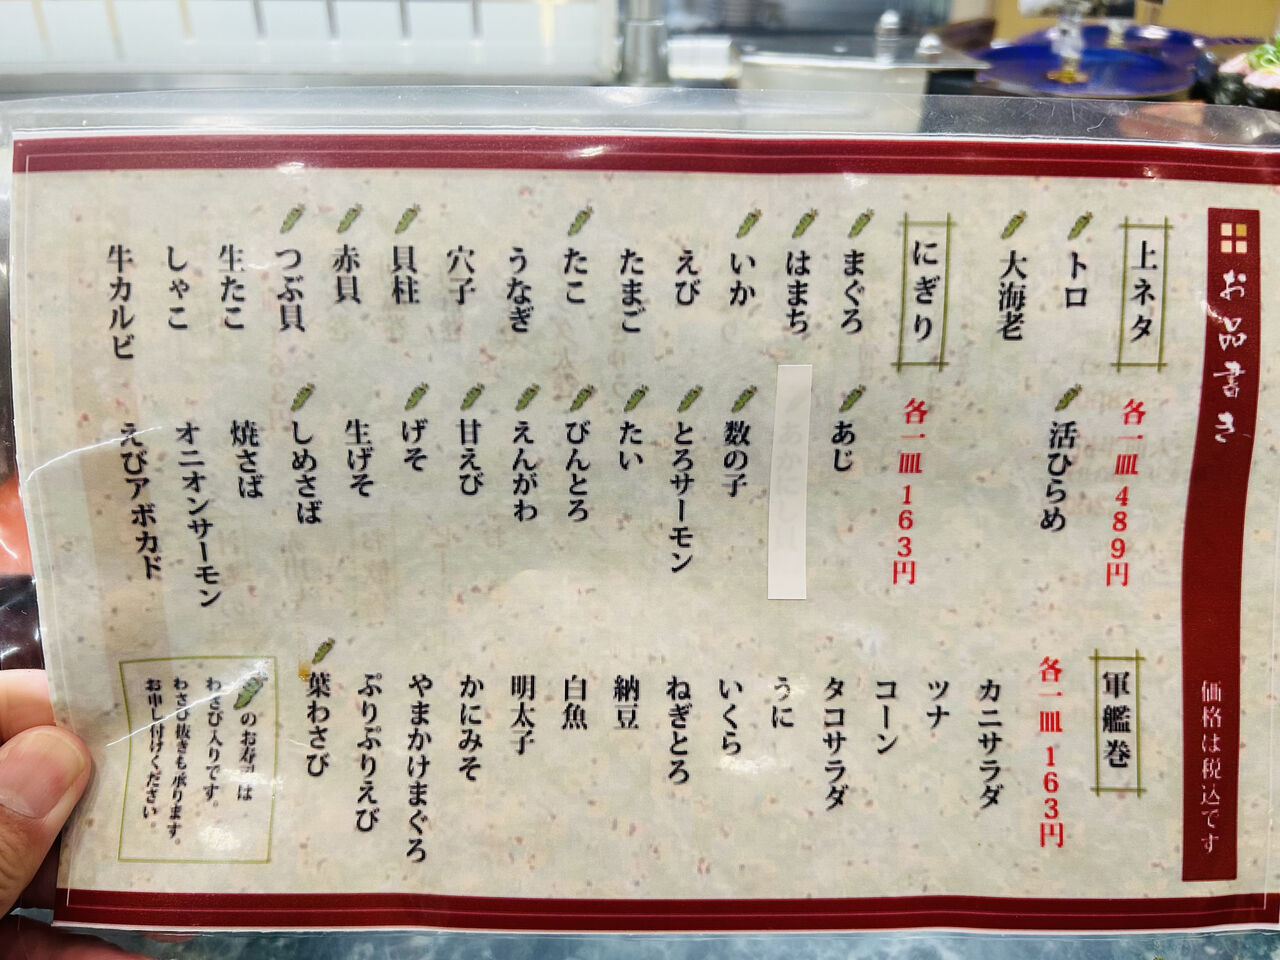 お品書き
価格は税込です
上ネタ
各一皿 489円
トロ
大海老
活ひらめ
にぎり
各一皿 163円
まぐろ
はまち
いか
えび
たまご
たこ
うなぎ
穴子
貝柱
赤貝
つぶ貝
生たこ
しゃこ
牛カルビ
あじ
数の子
とろサーモン
たい
びんとろ
えんがわ
甘えび
げそ
生げそ
しめさば
焼さば
オニオンサーモン
えびアボカド
軍艦巻
各一皿 163円
カニサラダ
ツナ
コーン
タコサラダ
うに
いくら
ねぎとろ
納豆
白魚
明太子
かにみそ
やまかけまぐろ
ぷりぷりえび
葉わさび
のお寿司は
わさび入りです。
わさび抜きも承ります。
お申し付けください。